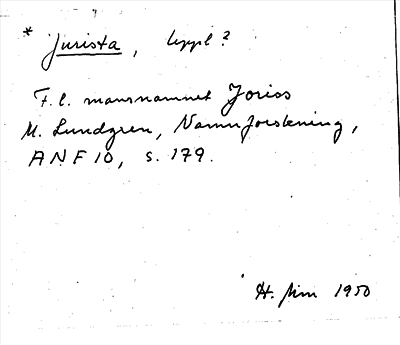 * Jurista, Uppl?
F.l. mansnamnet Joriss
M. Lundgren, Namnforskning,
ANF 10, s. 179.
H. 1950